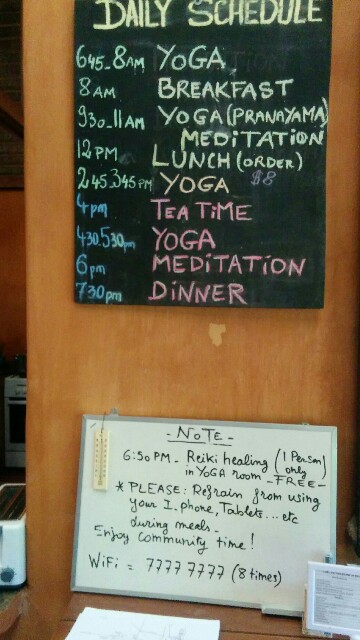 DAILY SCHEDULE
645-8AM YOGA
8AM BREAKFAST
930-11AM YOGA (PRANAYAMA)
MEDITATION
12 PM LUNCH (ORDER)
245.345PM YOGA $8
4pm TEA TIME
430.530pm YOGA
6pm MEDITATION
730pm DINNER
- NOTE -
6:50 PM - Reiki healing (1 Person only)
in YOGA room - FREE -
* PLEASE: Refrain from using
your I.phone, Tablets... etc
during meals -
Enjoy community time!
WiFi = 7777 7777 (8 times)